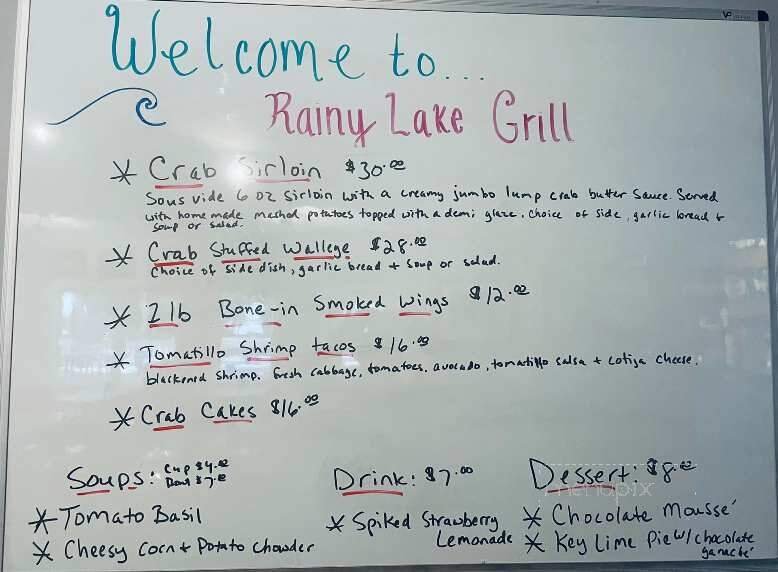 Welcome to...
Rainy Lake Grill
* Crab Sirloin $30.00
Sous vide 6 oz sirloin with a creamy jumbo lump crab butter sauce. Served
with home made mashed potatoes topped with a demi glaze. choice of side, garlic bread +
soup or salad.
* Crab Stuffed Wallege $28.00
Choice of side dish, garlic bread + soup or salad.
* 1lb Bone-in Smoked Wings $12.00
* Tomatillo Shrimp tacos $16.00
blackened shrimp. fresh cabbage, tomatoes, avocado, tomatillo salsa + cotija cheese.
* Crab Cakes $16.00
Soups: Cup $4.00
Bowl $7.00
* Tomato Basil
* Cheesy Corn + Potato Chowder
Drink: $7.00
* Spiked Strawberry
Lemonade
Dessert: $8.00
menupix
* Chocolate Moussé
* Key Lime Pie w/ chocolate
ganaché